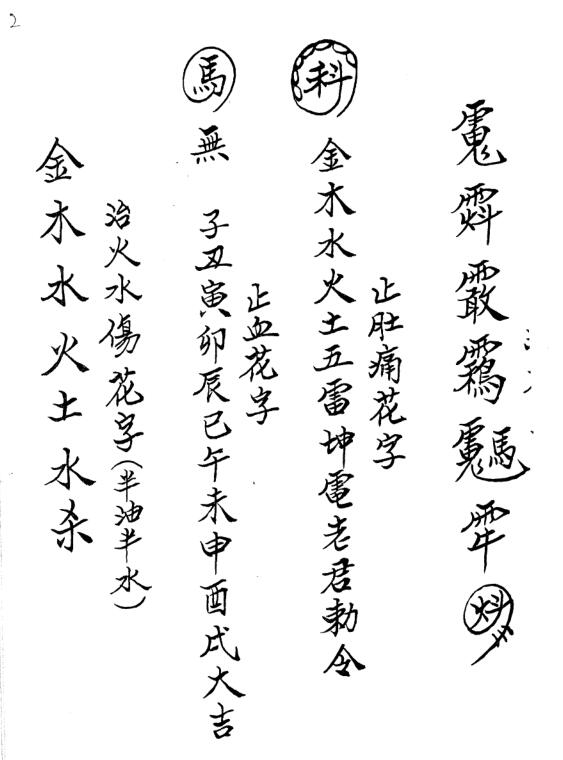 2
止肚痛花字
金木水火土五雷坤電老君勅令
止血花字
馬無 子丑寅卯辰巳午未申酉戌大吉
治火水傷花字(半油半水)
金木水火土水杀